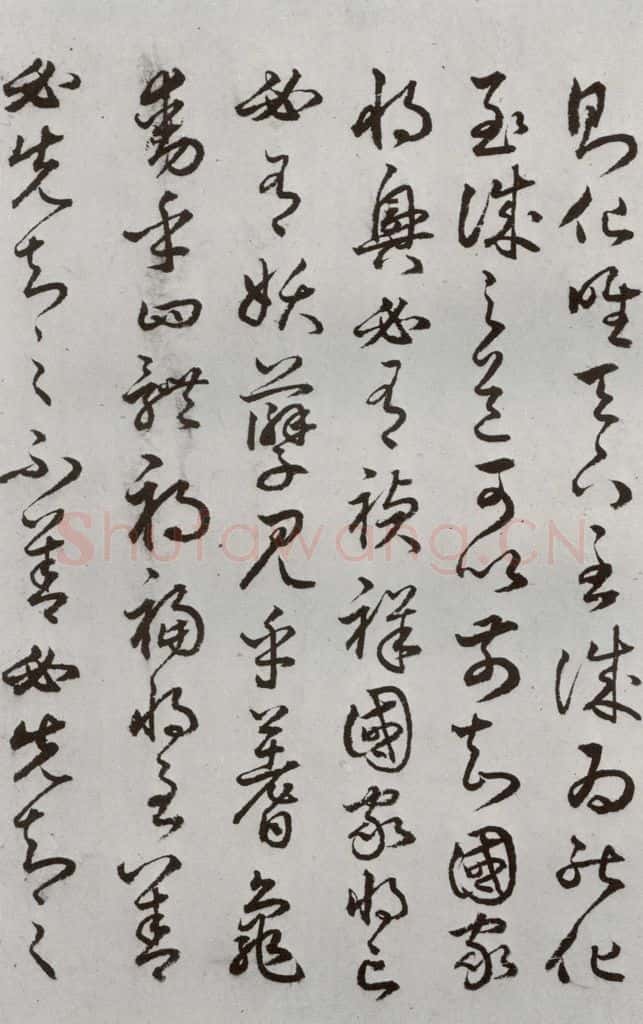 則化唯天下至誠為能化
至誠之道可以前知國家
將興必有禎祥國家將亡
必有妖孽見乎蓍龜
動乎四體禍福將至善
必先知之不善必先知之
Shufawang.CN